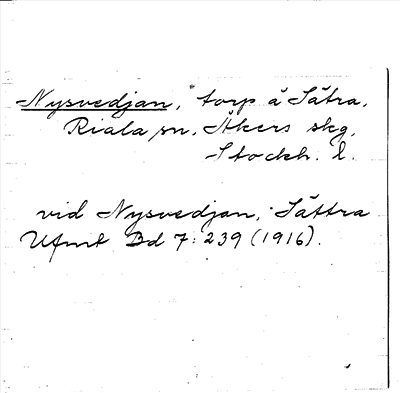 Nysvedjan, torp å Sätra,
Riala sn, Åkers skg,
Stockh. l.
vid Nysvedjan, Sättra
Ufmt Bd 7: 239 (1916).